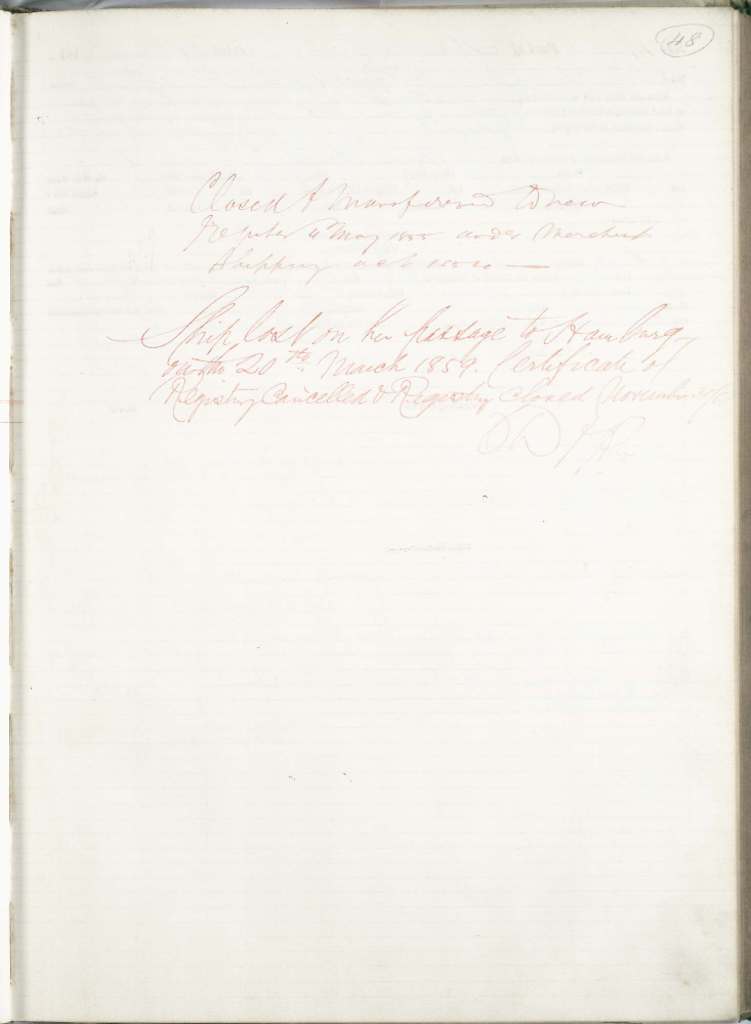 48
Closed & Transferred to new
Register 4 May 1855 under Merchant
Shipping act
Ship lost on her passage to Hamburg
on the 20th March 1859. Certificate of
Registry Cancelled & Registry Closed November